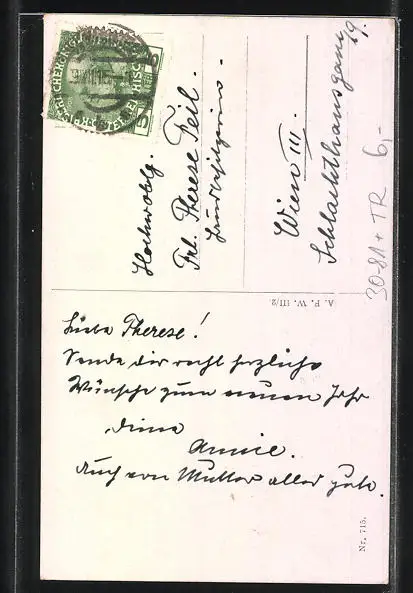 Hochwohlg.
Frl. Therese Feil.
Wien III.
Schlachthausgasse
19.
Liebe Therese!
Sende dir recht herzliche
Wünsche zum neuen Jahr
deine
Annie.
Auch von Mutter alles gute.
A. F. W. III/2.
Nr. 715.
3081+TR 6,-
5